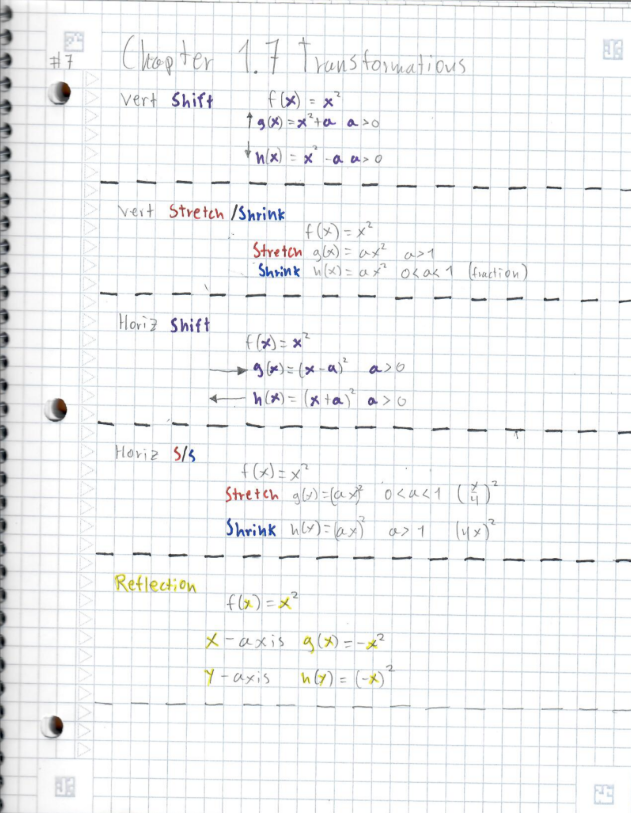 #7 Chapter 1.7 Transformations
Vert Shift f(x) = x²
↑ g(x) = x²+a a>0
↓ h(x) = x² -a a>0
Vert Stretch/Shrink
f(x) = x²
Stretch g(x) = ax² a>1
Shrink h(x) = ax² 0<a<1 (fraction)
Horiz Shift
f(x) = x²
→ g(x) = (x-a)² a>0
← h(x) = (x+a)² a>0
Horiz S/S
f(x) = x²
Stretch g(x) = (ax)² 0<a<1 (x/4)²
Shrink h(x) = (ax)² a>1 (4x)²
Reflection
f(x) = x²
X-axis g(x) = -x²
Y-axis h(x) = (-x)²